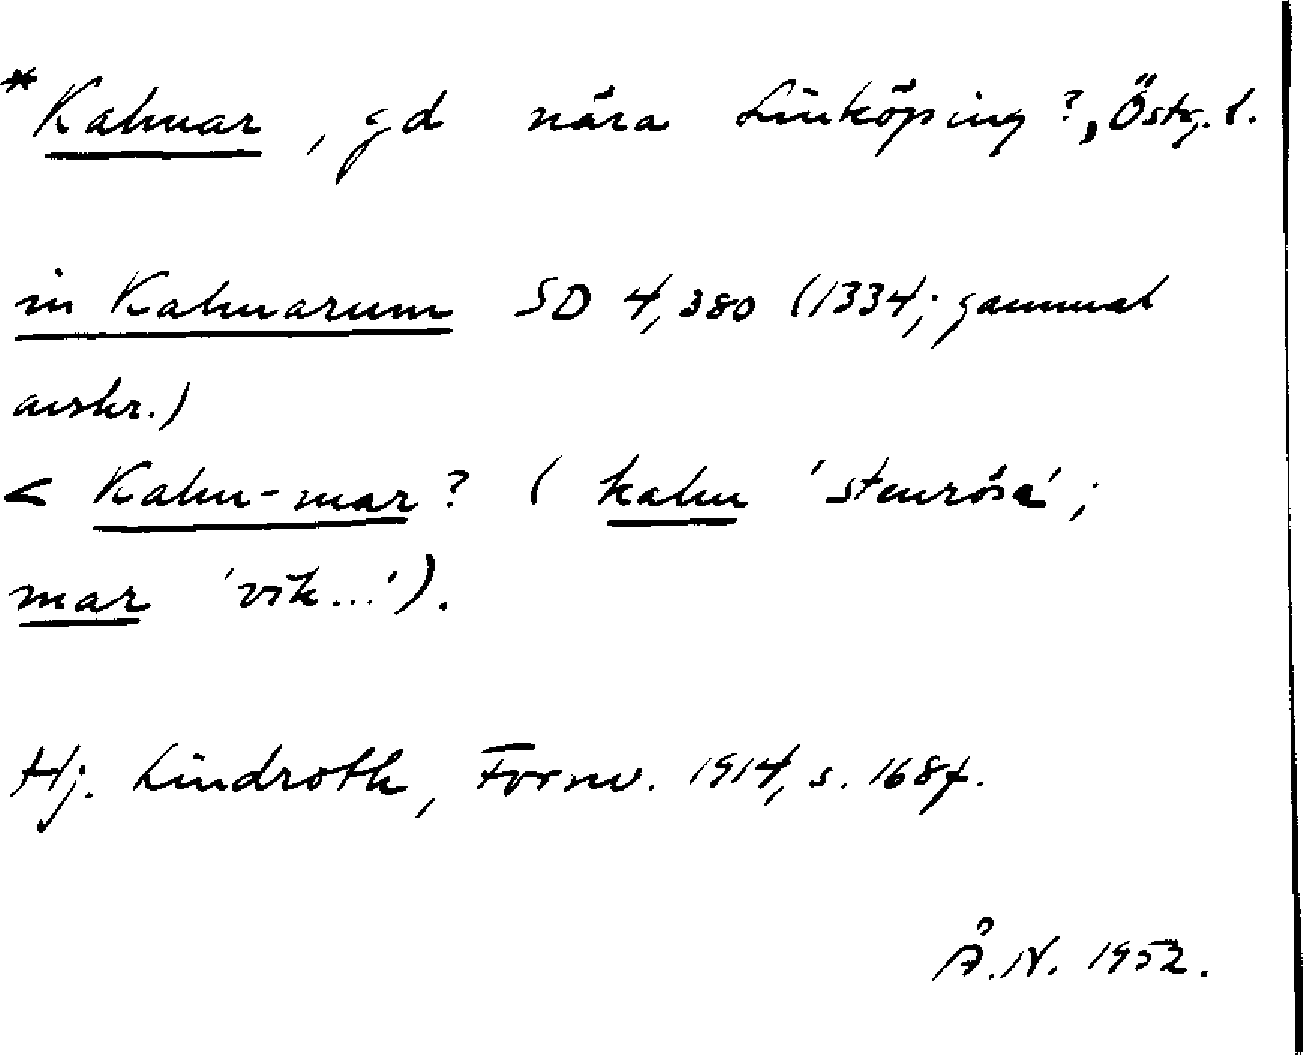 *Kalmar, gd nära Linköping?, Östg. l.
in Kalmarum SD 4,380 (1334; gammal
avskr.)
< Kalm-mar? (kalm 'stenröse';
mar 'vik...').
Hj. Lindroth, Fornv. 1914, s. 168f.
Å.N. 1952.